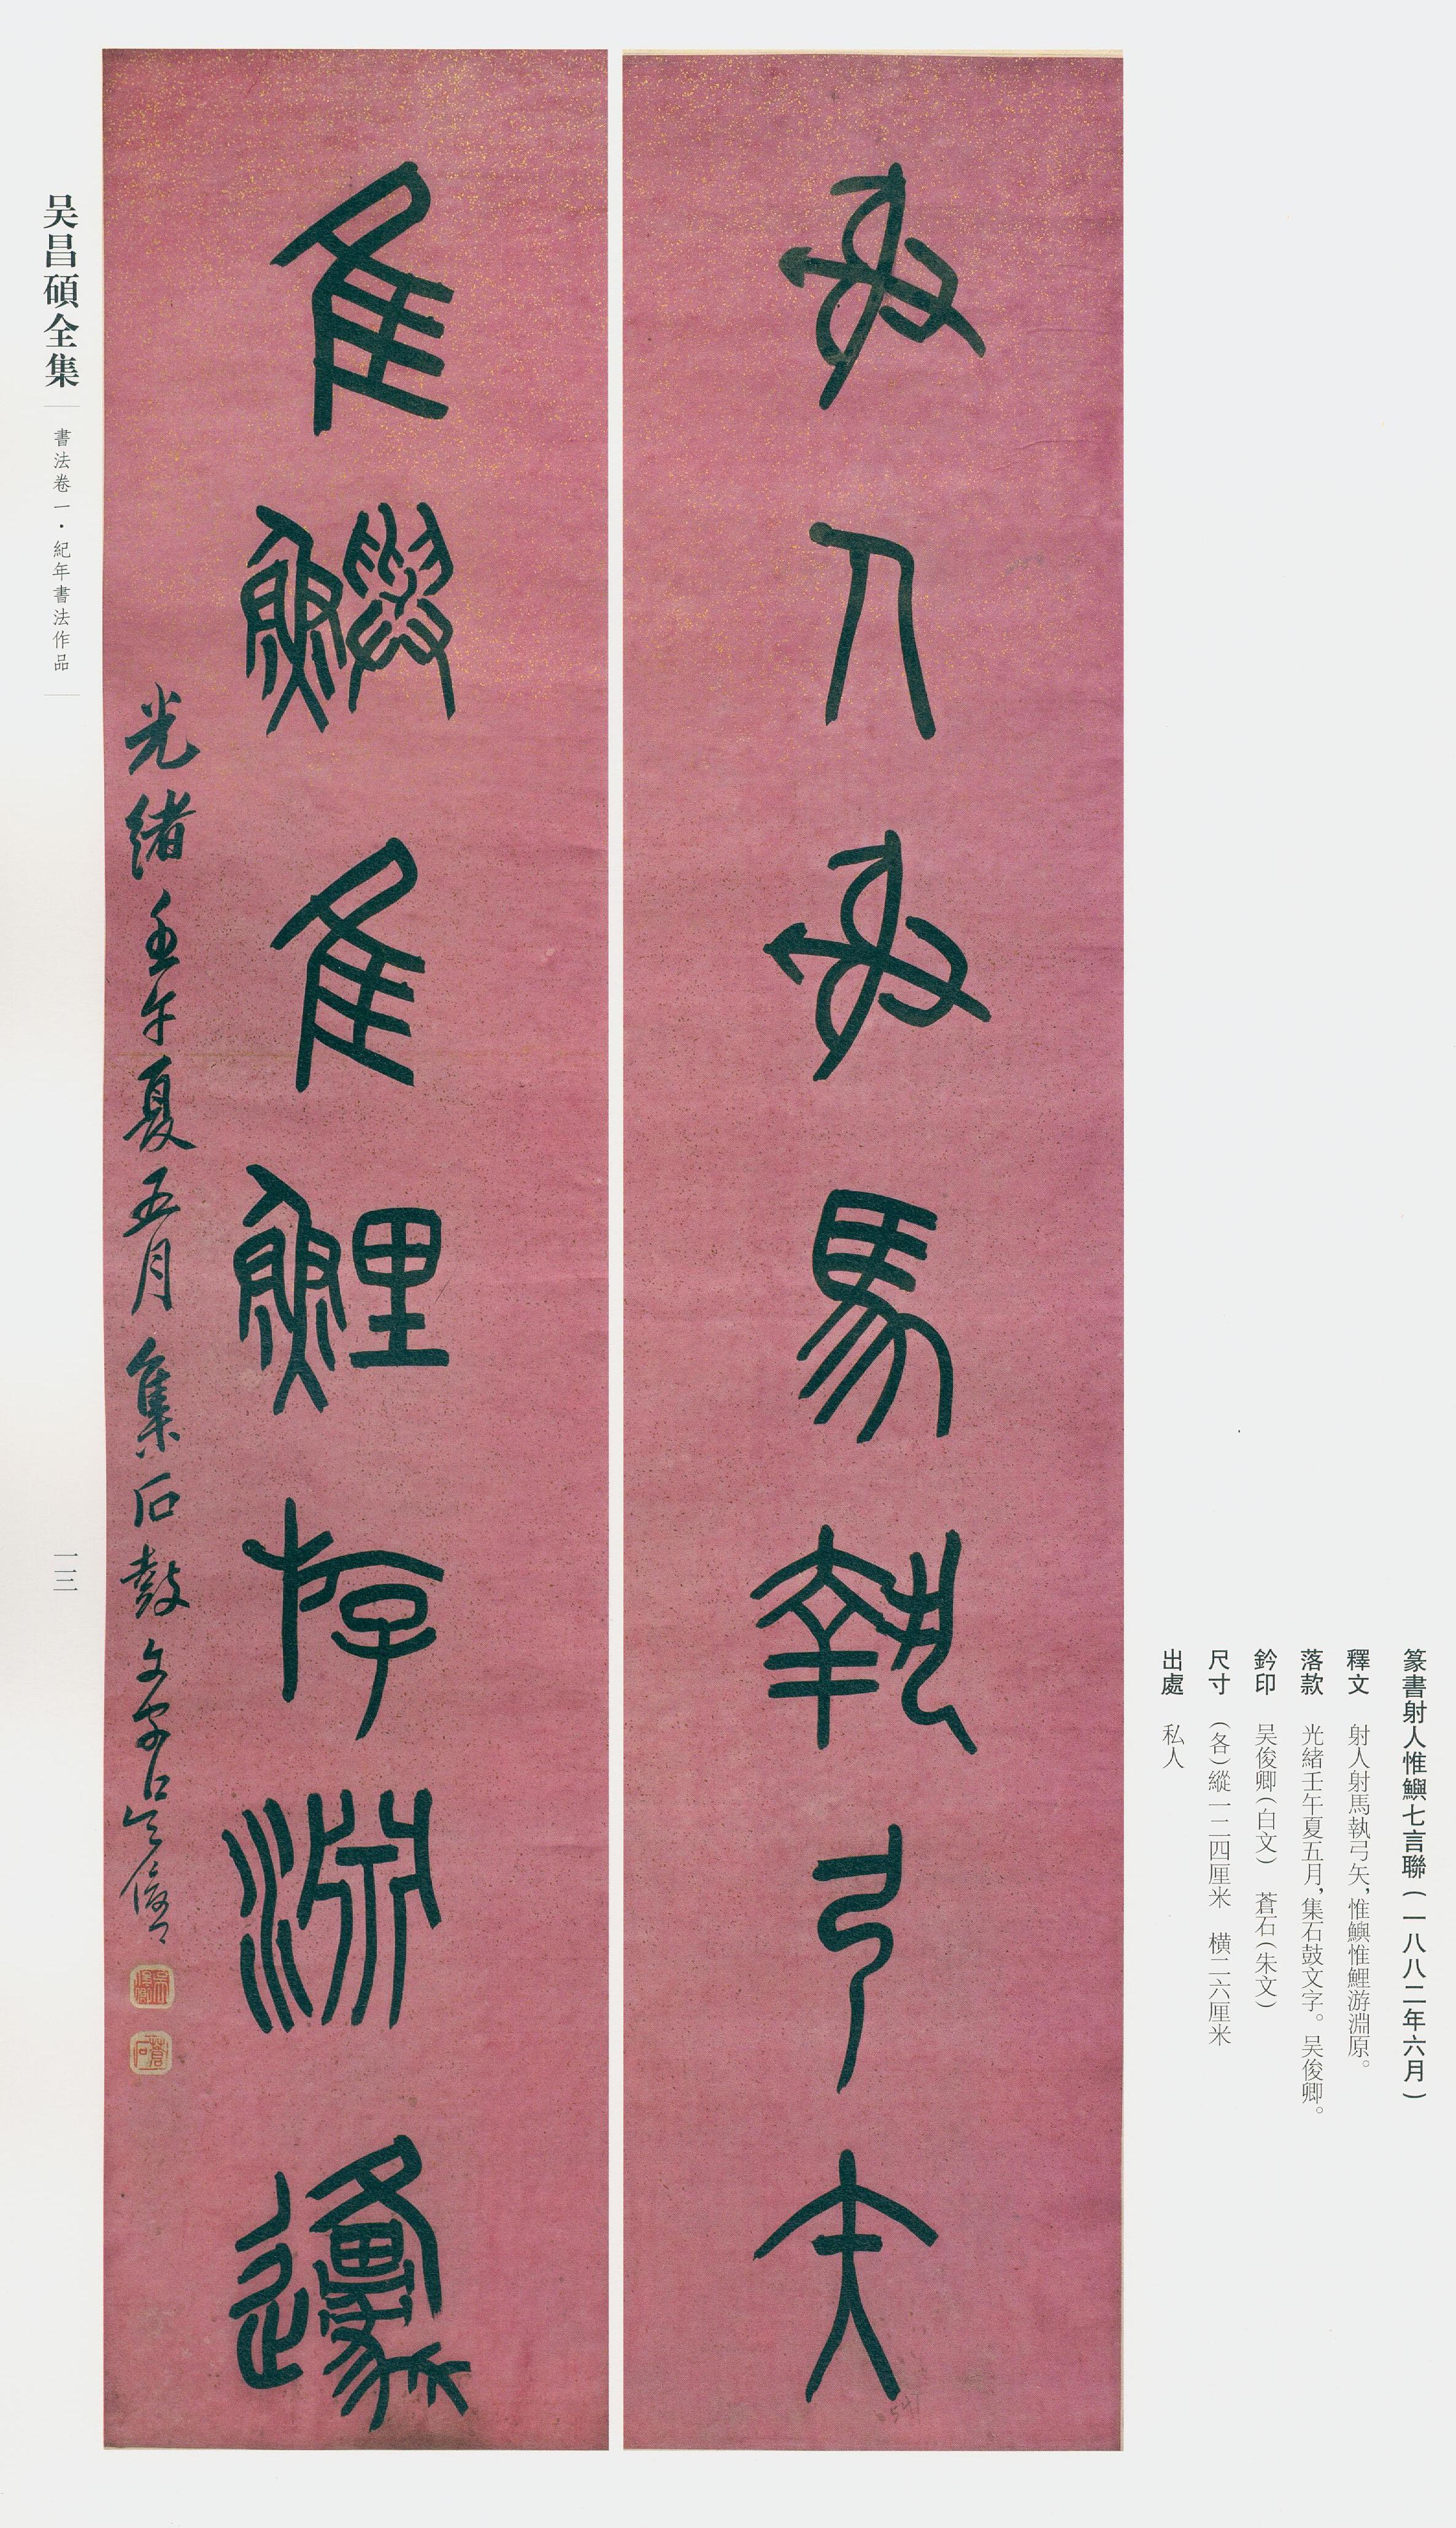 篆書射人惟鱮七言聯(一八八二年六月)
釋文 射人射馬執弓矢,惟鱮惟鯉游淵原。
落款 光緒壬午夏五月,集石鼓文字。吴俊卿。
鈐印 吴俊卿(白文) 蒼石(朱文)
尺寸 (各)縱一二四厘米 横二六厘米
出處 私人
射人射馬執弓矢
隹鱮隹鯉斿淵邍
光緒壬午夏五月集石鼓文字吴俊卿
吴俊卿
蒼石
吴昌碩全集
書法卷一・紀年書法作品
一三